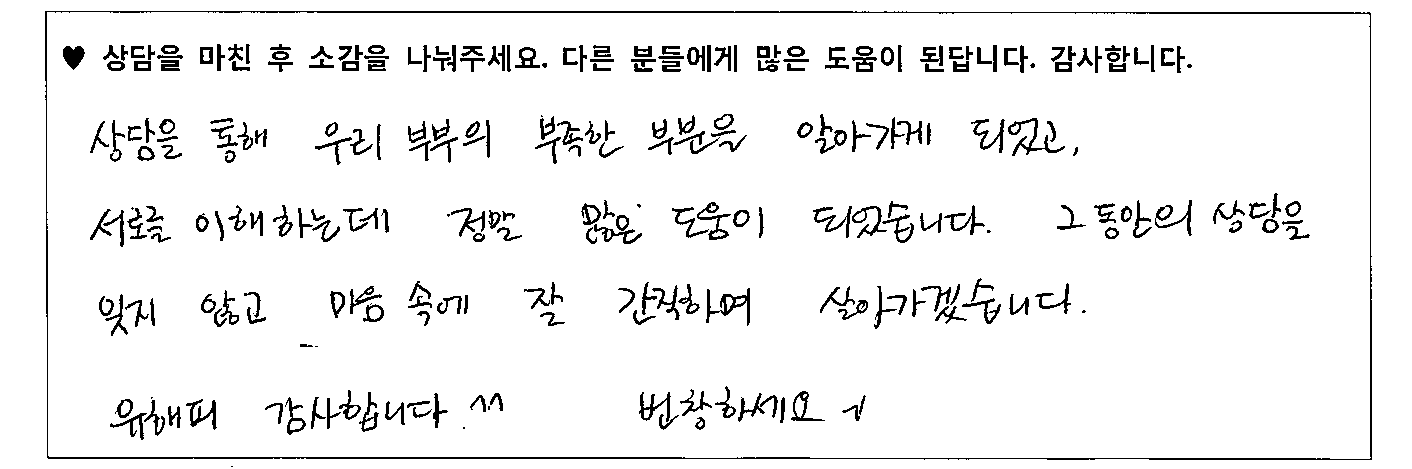 ♥ 상담을 마친 후 소감을 나눠주세요. 다른 분들에게 많은 도움이 된답니다. 감사합니다.
상담을 통해 우리 부부의 부족한 부분을 알아가게 되었고,
서로를 이해하는데 정말 많은 도움이 되었습니다. 그동안의 상담을
잊지 않고 마음 속에 잘 간직하며 살아가겠습니다.
유해피 감사합니다 ^^ 번창하세요